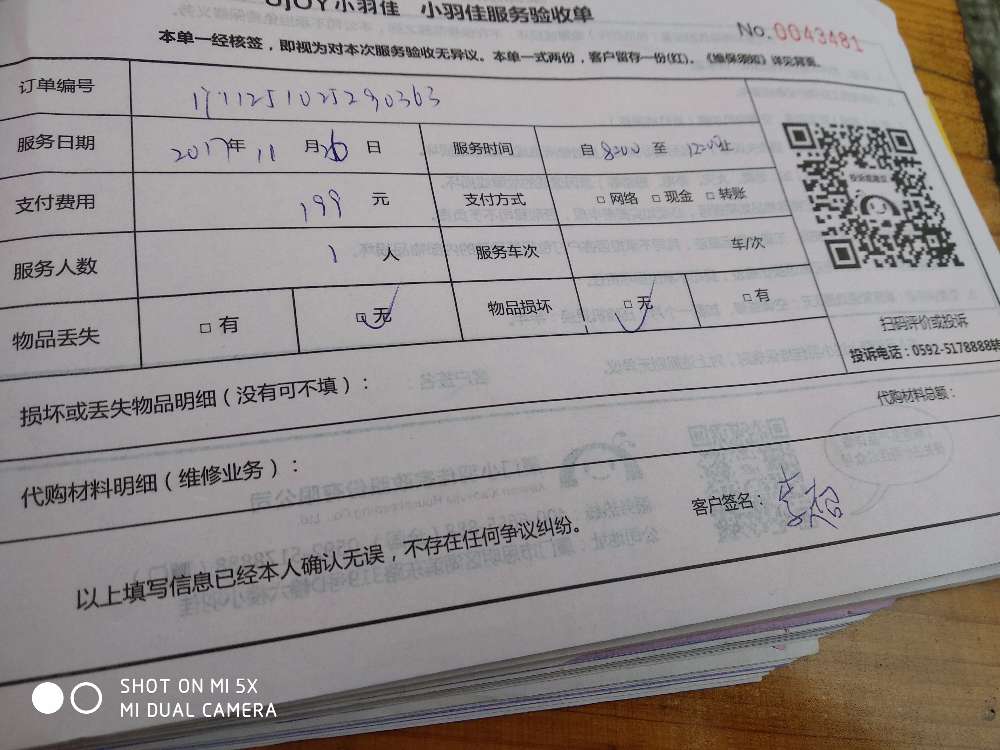 UJOY小羽佳 小羽佳服务验收单
No.0043481
本单一经核签，即视为对本次服务验收无异议。本单一式两份，客户留存一份(红)。《维保须知》详见背面。
订单编号 1711251025290363
服务日期 2017年 11 月 26 日 服务时间 自 8:00 至 12:00止
支付费用 199 元 支付方式 □ 网络 □ 现金 □ 转账
服务人数 1 人 服务车次 车/次
物品丢失 □ 有 □ 无 物品损坏 □ 无 □ 有
投诉或建议
扫码评价或投诉
投诉电话：0592-5178888转
损坏或丢失物品明细（没有可不填）：
代购材料总额：
代购材料明细（维修业务）：
客户签名：
以上填写信息已经本人确认无误，不存在任何争议纠纷。
SHOT ON MI 5X
MI DUAL CAMERA